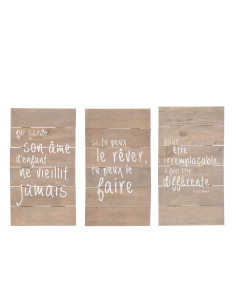 qui garde
son âme
d'enfant
ne vieillit
jamais
si tu peux
le rêver,
tu peux le
faire
pour
être
irremplaçable
il faut être
différente